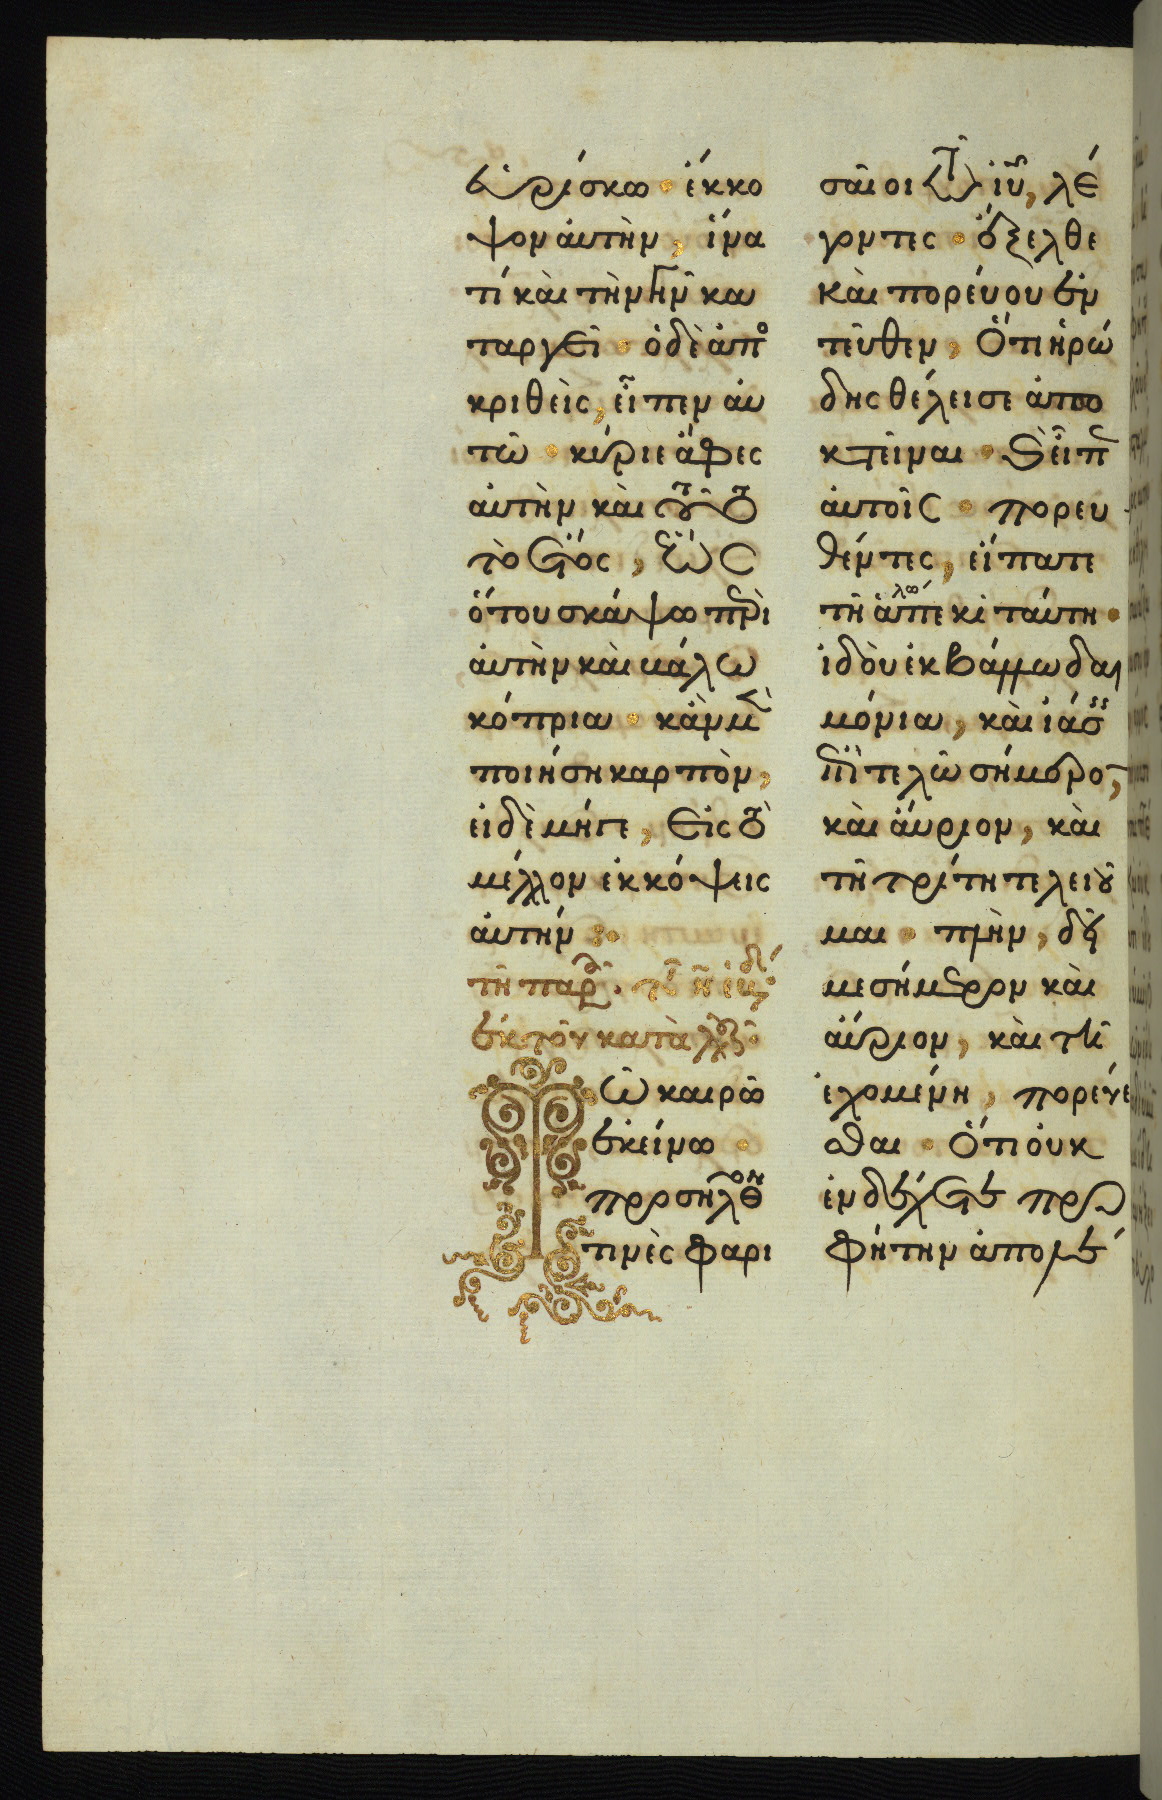 εὑρίσκω · ἔκκο
ψον αὐτὴν, ἵνα
τί καὶ τὴν γῆν κα
ταργεῖ · ὁ δὲ ἀπο
κριθεὶς, εἶπεν αὐ
τῶ · κύριε ἄφες
αὐτὴν καὶ τοῦτο
τὸ ἔτος, ἕως
ὅτου σκάψω περὶ
αὐτὴν καὶ βάλω
κόπρια · κἂν μὲν
ποιήση καρπὸν,
εἰ δὲ μήγε, εἰς τὸ
μέλλον ἐκκόψεις
αὐτήν :·
ἐκ τοῦ κατὰ λουκᾶν
Τῶ καιρῶ
ἐκείνω ·
προσῆλθον
τινὲς φαρι
σαῖοι τῶ ἰῦ, λέ
γοντες · ἔξελθε
καὶ πορεύου ἐν
τεῦθεν, ὅτι ἡρώ
δης θέλει σε ἀπο
κτεῖναι · καὶ εἶπεν
αὐτοῖς · πορευ
θέντες, εἴπατε
τῆ ἀλώπεκι ταύτη ·
ἰδοὺ ἐκβάλλω δαι
μόνια, καὶ ἰάσεις
ἐπιτελῶ σήμερον,
καὶ αὔριον, καὶ
τῆ τρίτη τελειοῦ
μαι · πλὴν, δεῖ
με σήμερον καὶ
αὔριον, καὶ τῆ
ἐχομένη, πορεύε
σθαι · ὅτι οὐκ
ἐνδέχεται προ
φήτην ἀπολέ